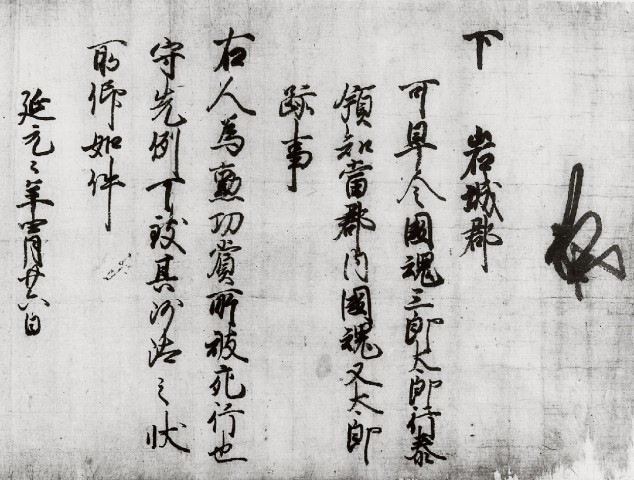 下　岩城郡
可早令國魂三郎太郎行泰
領知當郡内國魂又太郎
跡事
右人為勲功賞所被宛行也
守先例可致其沙汰之状
所仰如件
延元々年四月廿六日